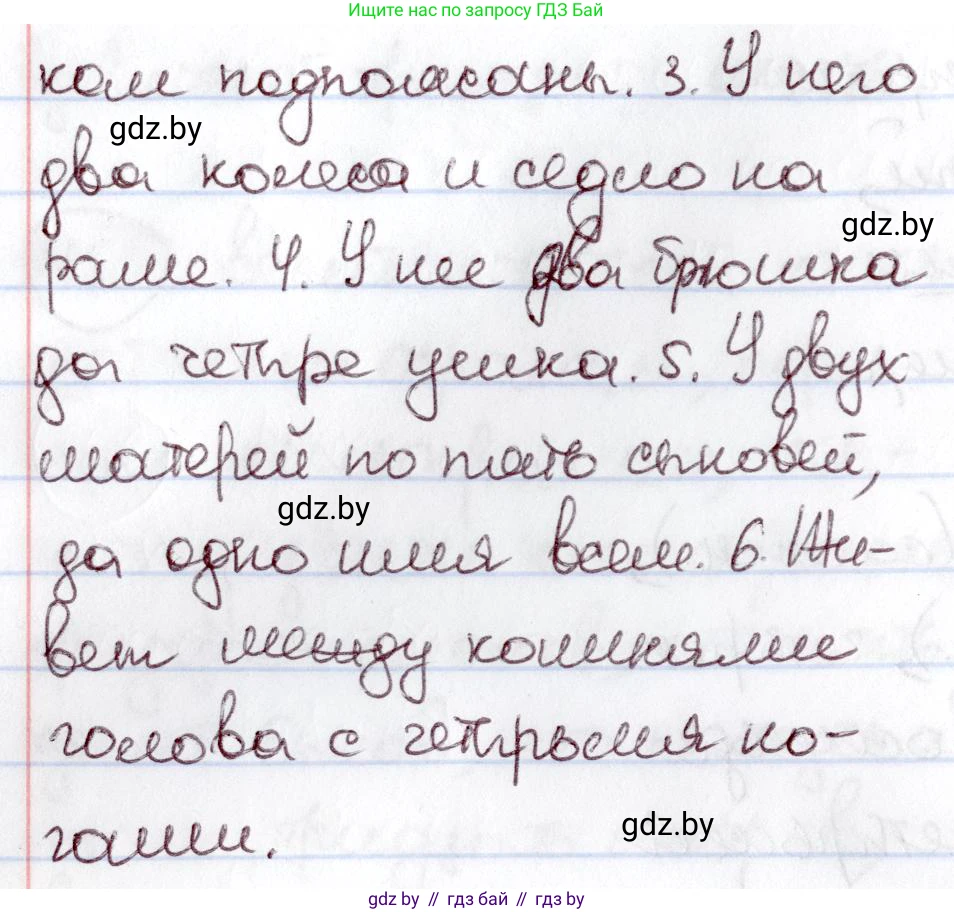 Ищите нас по запросу ГДЗ Бай
ком подпоясаны. 3. У него
gdz.by
два колеса и седло на
gdz.by
раме. 4. У нее два брюшка
да четыре ушка. 5. У двух
матерей по пять сыновей,
gdz.by
да одно имя всем. 6. Жи-
вет между камнями
голова с четырьмя но-
гами.
gdz.by
gdz.by // гдз бай // gdz.by